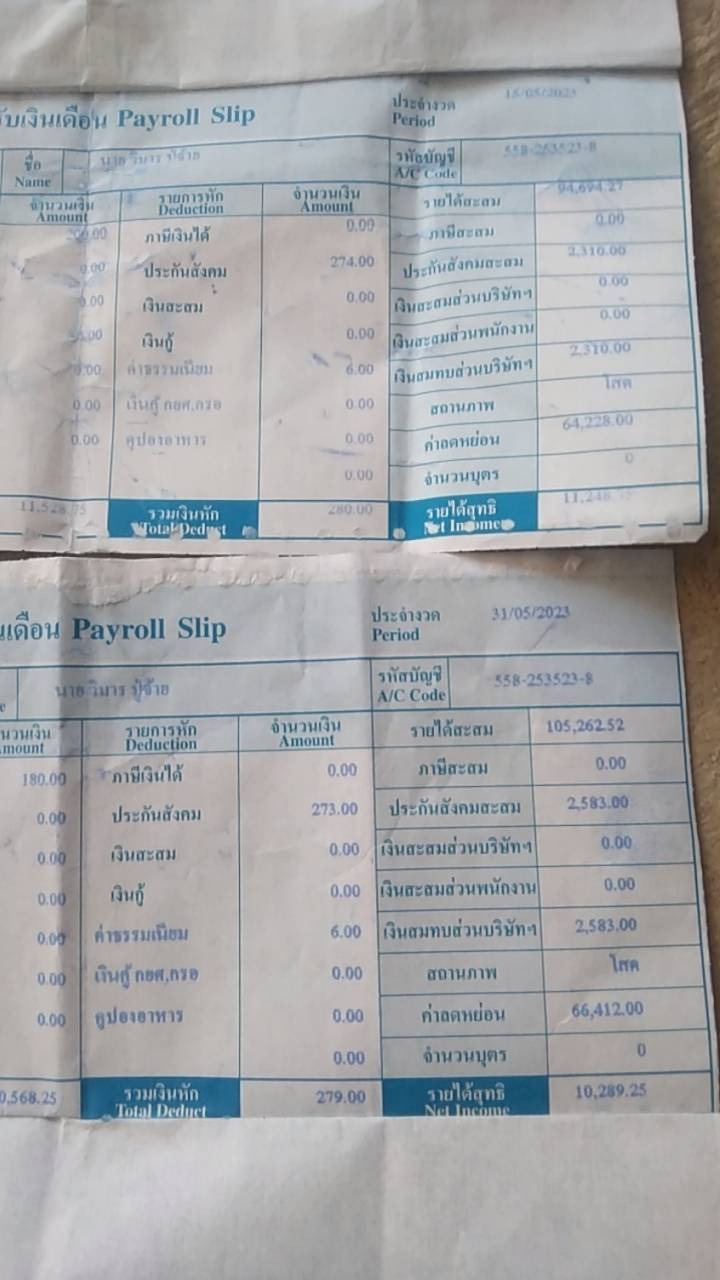 รับเงินเดือน Payroll Slip ประจำงวด 15/05/2023
Period
ชื่อ นาย วิมาร ปู่จ้าย รหัสบัญชี 558-253523-8
Name A/C Code
จำนวนเงิน รายการหัก จำนวนเงิน รายได้สะสม 94,694.27
Amount Deduction Amount
ภาษีเงินได้ 0.00 ภาษีสะสม 0.00
0.00 ประกันสังคม 274.00 ประกันสังคมสะสม 2,310.00
0.00 เงินสะสม 0.00 เงินสะสมส่วนบริษัทฯ 0.00
เงินกู้ 0.00 เงินสะสมส่วนพนักงาน 0.00
0.00 ค่าธรรมเนียม 6.00 เงินสมทบส่วนบริษัทฯ 2,310.00
0.00 เงินกู้ กยศ,กรอ 0.00 สถานภาพ โสด
0.00 คูปองอาหาร 0.00 ค่าลดหย่อน 64,228.00
0.00 จำนวนบุตร 0
11,528.75 รวมเงินหัก 280.00 รายได้สุทธิ 11,248.75
Total Deduct Net Income
นเดือน Payroll Slip ประจำงวด 31/05/2023
Period
นาย วิมาร ปู่จ้าย รหัสบัญชี 558-253523-8
e A/C Code
นวนเงิน รายการหัก จำนวนเงิน รายได้สะสม 105,262.52
mount Deduction Amount
180.00 ภาษีเงินได้ 0.00 ภาษีสะสม 0.00
0.00 ประกันสังคม 273.00 ประกันสังคมสะสม 2,583.00
0.00 เงินสะสม 0.00 เงินสะสมส่วนบริษัทฯ 0.00
0.00 เงินกู้ 0.00 เงินสะสมส่วนพนักงาน 0.00
0.00 ค่าธรรมเนียม 6.00 เงินสมทบส่วนบริษัทฯ 2,583.00
0.00 เงินกู้ กยศ,กรอ 0.00 สถานภาพ โสด
0.00 คูปองอาหาร 0.00 ค่าลดหย่อน 66,412.00
0.00 จำนวนบุตร 0
0,568.25 รวมเงินหัก 279.00 รายได้สุทธิ 10,289.25
Total Deduct Net Income